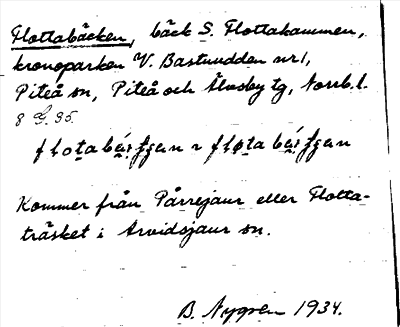 Flottabäcken, bäck S. Flottakammen,
kronoparken V. Bastuudden nr 1,
Piteå sn, Piteå och Älvsby tg, Norrb. l.
8 G. 35.
Kommer från Pårrejaur eller Flotta-
träsket i Arvidsjaur sn.
B. Nygren 1934.